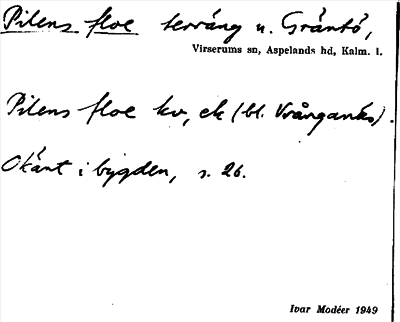 Pilens floe terräng u. Gräntö,
Virserums sn, Aspelands hd, Kalm. l.
Pilens floe kv, ek (bl. Vrånganäs).
Okänt i bygden, s. 26.
Ivar Modéer 1949